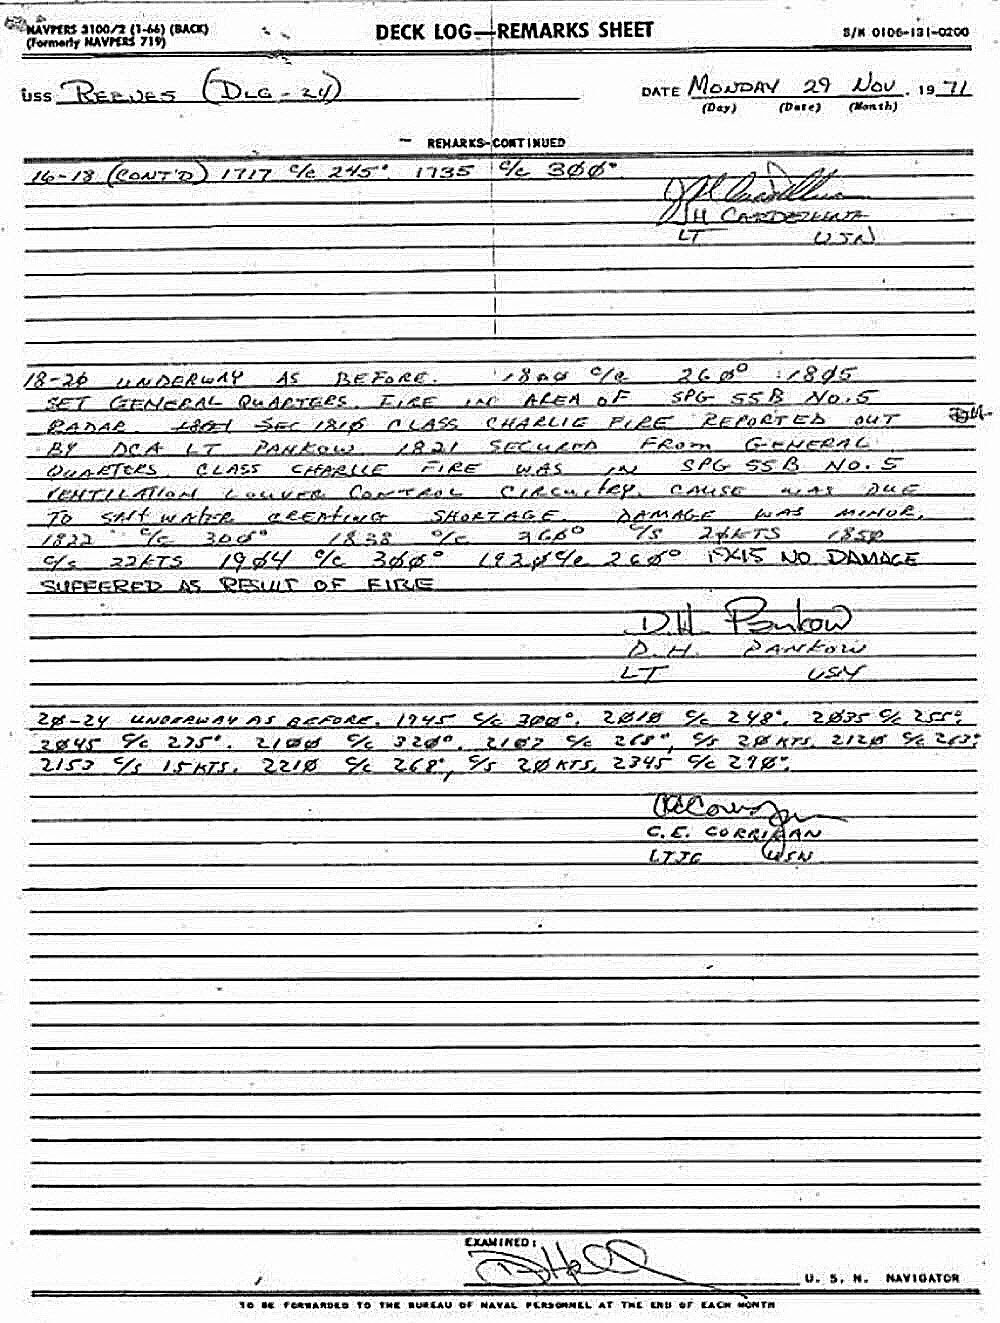 NAVPERS 3100/2 (1-66) (BACK)
(Formerly NAVPERS 719)
DECK LOG—REMARKS SHEET
S/N 0106-131-0200
USS REEVES (DLG-24)
DATE MONDAY 29 NOV. 1971
(Day) (Date) (Month)
REMARKS-CONTINUED
16-18 (CONT'D) 1717 c/c 245°. 1735 c/c 3ØØ°.
LT USN
18-2Ø UNDERWAY AS BEFORE. 18ØØ c/c 26Ø° 18Ø5
SET GENERAL QUARTERS. FIRE IN AREA OF SPG 55B NO.5
RADAR. SEC 181Ø CLASS CHARLIE FIRE REPORTED OUT
BY DCA LT PANKOW 1821 SECURED FROM GENERAL
QUARTERS. CLASS CHARLIE FIRE WAS IN SPG 55B NO.5
VENTILATION LOUVER CONTROL CIRCUITRY. CAUSE WAS DUE
TO SALT WATER CREATING SHORTAGE. DAMAGE WAS MINOR.
1822 c/c 3ØØ° 1838 c/c c/s 2ØKTS 185Ø
c/s 22KTS 19Ø4 c/c 3ØØ° 192Ø c/c 26Ø° NO DAMAGE
SUFFERED AS RESULT OF FIRE
D.H. Pankow
D.H. PANKOW
LT USN
2Ø-24 UNDERWAY AS BEFORE. 1945 c/c 3ØØ°. 2Ø1Ø c/c 248°. 2Ø35 c/c 255°.
2Ø45 c/c 275°. 21ØØ c/c 32Ø°. 2107 c/c 268°, c/s 2Ø KTS. 212Ø c/c 263°.
2153 c/s 15KTS. 221Ø c/c 268°, c/s 2Ø KTS. 2345 c/c 29Ø°.
C.E. CORRIGAN
LTJG USN
EXAMINED:
U. S. N. NAVIGATOR
TO BE FORWARDED TO THE BUREAU OF NAVAL PERSONNEL AT THE END OF EACH MONTH